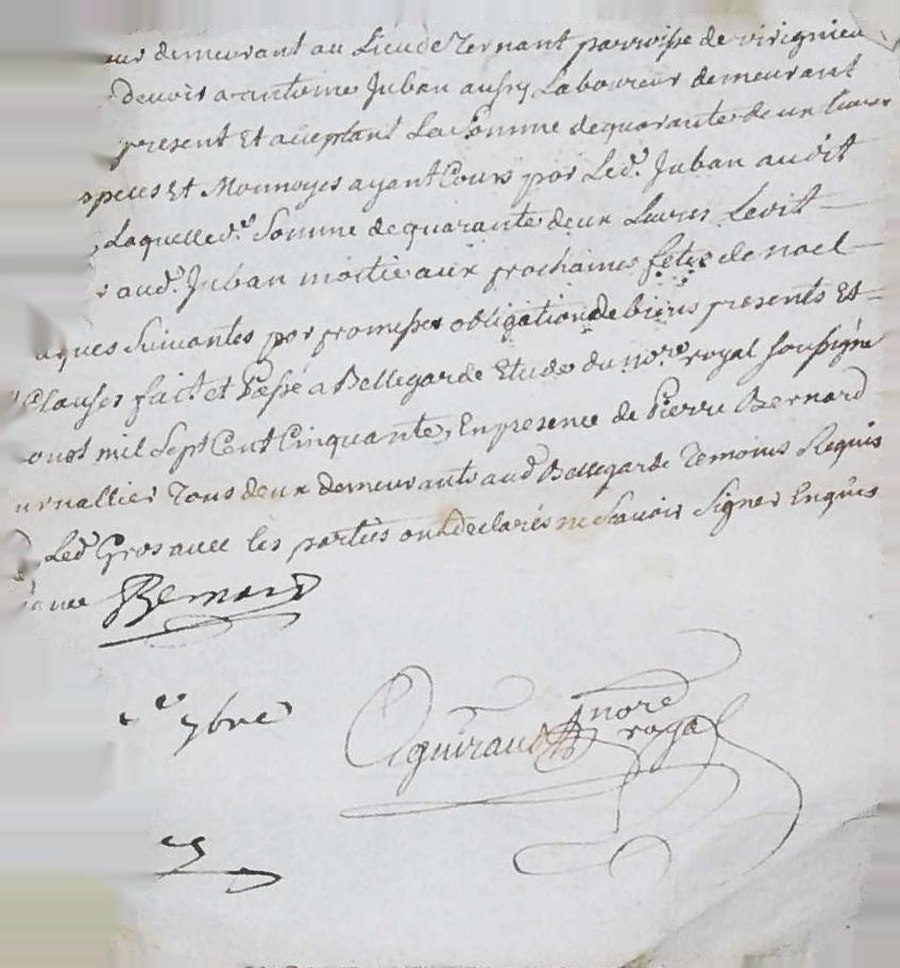 eur demeurant au Lieu de Ternant parroisse de virignieu
devoir a antoine Juban aussy Laboureur demeurant
present Et acceptant La Somme de quarante deux livres
speces Et Monnoyes ayant Cours por Led. Juban audit
Laquelled.e Somme de quarante deux Livres Ledit
aud. Juban moitié aux prochaines fetes de noel
aques Suivantes por promesse obligation de biens presents Et
Clauses fait. et Passé a Bellegarde Etude du nore royal soussigné
oust mil Sept Cent Cinquante, En presence de Pierre Bernard
urnallier Tous deux demeurants aud Bellegarde Temoins Requis
Led Gros avec les parties ont declarés ne Scavoir Signer Enquis
Bernard
7bre
Aguiraud nore
royal